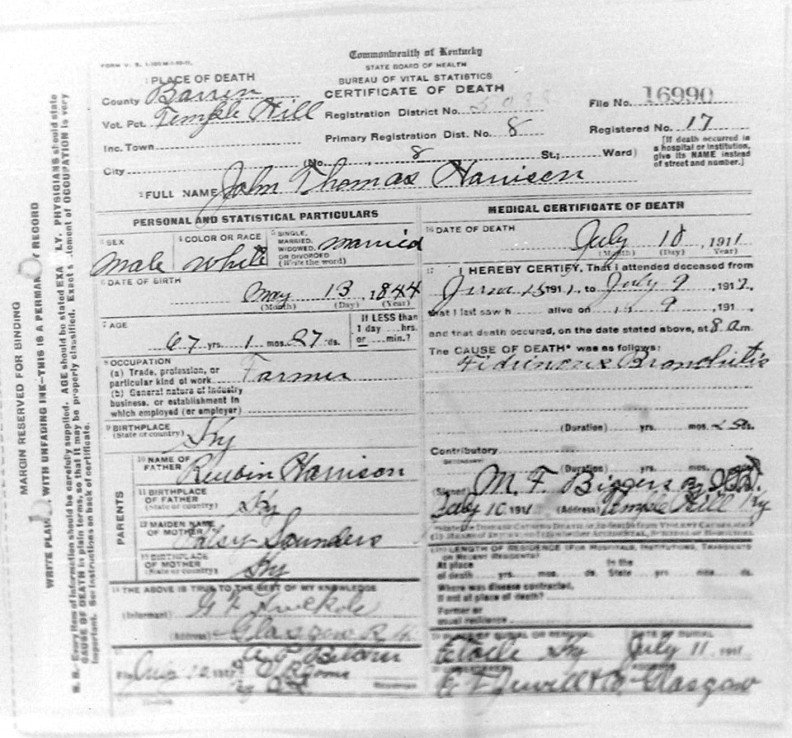 Commonwealth of Kentucky
STATE BOARD OF HEALTH
BUREAU OF VITAL STATISTICS
CERTIFICATE OF DEATH
1 PLACE OF DEATH
County Barren
Vot. Pct. Temple Hill
Inc. Town
City
Registration District No.
Primary Registration Dist. No. 8
(No. 8 St.; Ward)
File No. 16990
Registered No. 17
[If death occurred in
a hospital or institution,
give its NAME instead
of street and number.]
2 FULL NAME John Thomas Harrison
PERSONAL AND STATISTICAL PARTICULARS
3 SEX
Male
4 COLOR OR RACE
White
5 SINGLE,
MARRIED,
WIDOWED,
OR DIVORCED
(Write the word)
married
6 DATE OF BIRTH
May 13, 1844
(Month) (Day) (Year)
7 AGE
67 yrs. 1 mos. 27 ds.
If LESS than
1 day ... hrs.
or ... min.?
8 OCCUPATION
(a) Trade, profession, or
particular kind of work Farmer
(b) General nature of industry
business, or establishment in
which employed (or employer)
9 BIRTHPLACE
(State or country) Ky
PARENTS
10 NAME OF
FATHER Reubin Harrison
11 BIRTHPLACE
OF FATHER
(State or country) Ky
12 MAIDEN NAME
OF MOTHER Saunders
13 BIRTHPLACE
OF MOTHER
(State or country) Ky
14 THE ABOVE IS TRUE TO THE BEST OF MY KNOWLEDGE
(Informant)
(Address) Glasgow
MEDICAL CERTIFICATE OF DEATH
16 DATE OF DEATH
July 10, 1911
(Month) (Day) (Year)
17 I HEREBY CERTIFY, That I attended deceased from
June 15 191 1, to July 9 191
that I last saw h alive on 9, 191
and that death occured, on the date stated above, at 8 am.
The CAUSE OF DEATH* was as follows:
Bronchitis
(Duration) yrs. mos. ds.
Contributory
(Duration) yrs. mos. ds.
(Signed) M. F. Biggers
July 10, 191 (Address) Temple Hill Ky
LENGTH OF RESIDENCE (FOR HOSPITALS, INSTITUTIONS, TRANSIENTS
OR RECENT RESIDENTS)
At place
of death yrs. mos. ds.
In the
State yrs. mos. ds.
Where was disease contracted,
if not at place of death?
Former or
usual residence
Ky July 11, 1911
Glasgow
MARGIN RESERVED FOR BINDING
N. B.—Every item of information should be carefully supplied. AGE should be stated
CAUSE OF DEATH in plain terms, so that it may be properly classified.
important. See instructions on back of certificate.